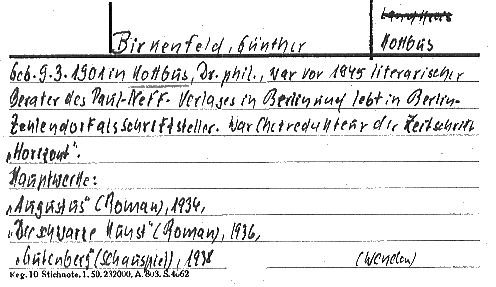 Birnenfeld, Günther
Kottbus
Geb. 9.3.1901 in Kottbus, Dr. phil., war vor 1945 literarischer
Berater des Paul-Neff-Verlages in Berlin und lebt in Berlin-
Zehlendorf als Schriftsteller. War Chefredakteur der Zeitschrift
„Horizont".
Hauptwerke:
„Augustus" (Roman), 1934,
„Die schwarze Kunst" (Roman), 1936,
„Gutenberg" (Schauspiel), 1938 (Wendon)
Reg. 10 Stichnote. 1. 50. 232000. A. 803. S. 4662